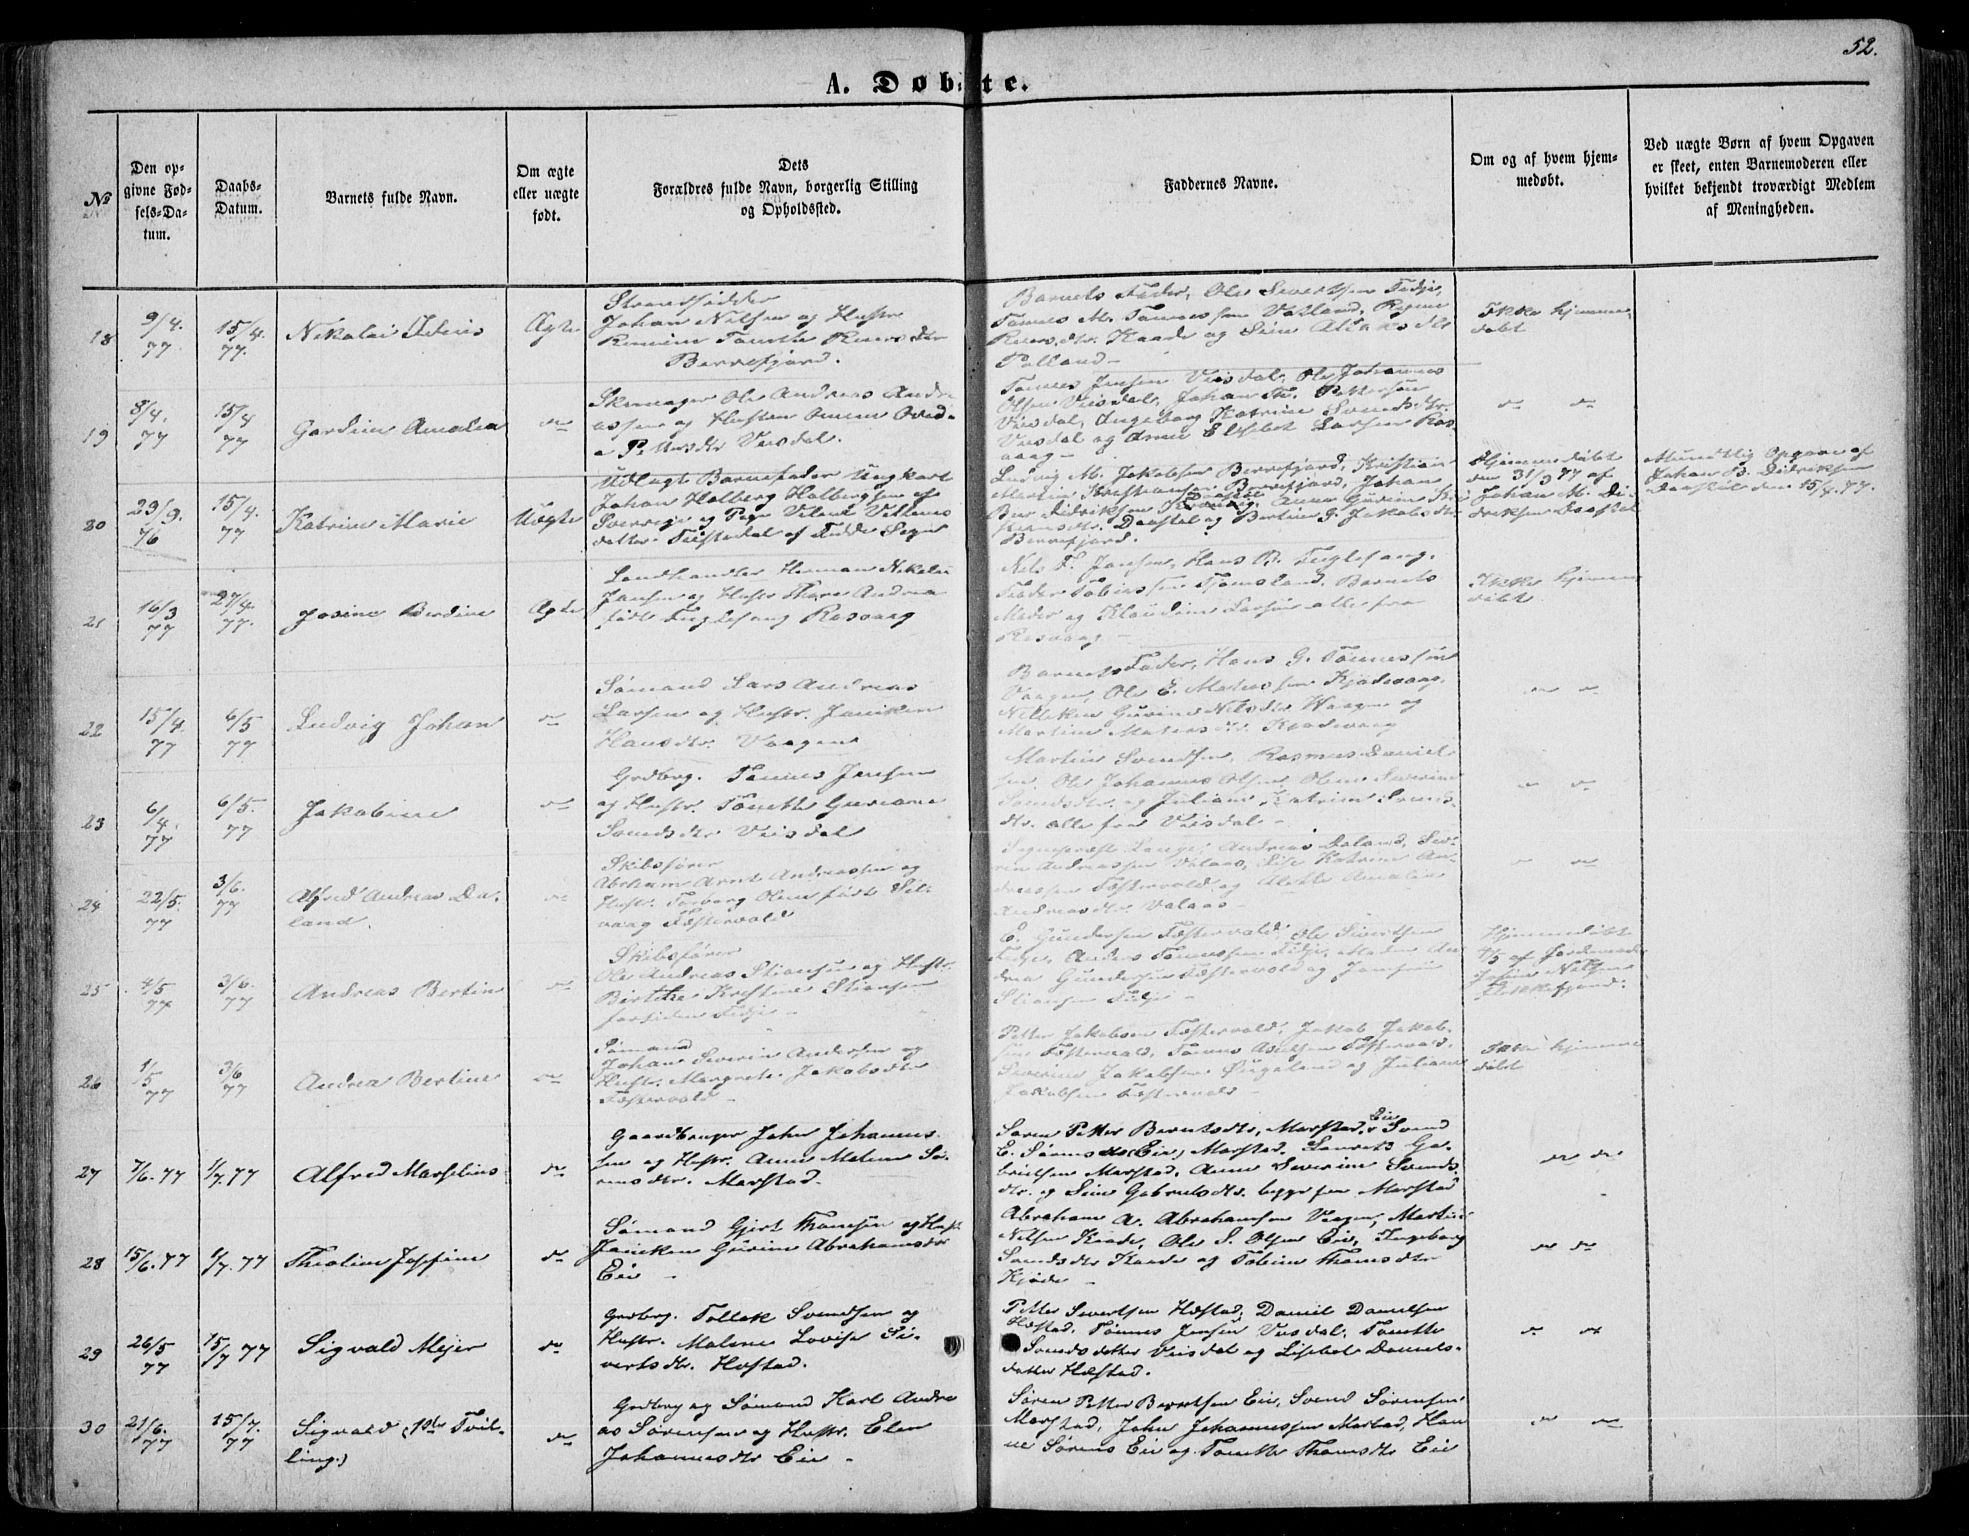 52.
A. Døbte.
№
Den op-
givne Fød-
sels-Da-
tum.
Daabs-
Datum.
Barnets fulde Navn.
Om ægte
eller uægte
født.
Dets
Forældres fulde Navn, borgerlig Stilling
og Opholdssted.
Faddernes Navne.
Om og af hvem hjem-
medøbt.
Ved uægte Børn af hvem Opgaven
er skeet, enten Barnemoderen eller
hvilket bekjendt troværdigt Medlem
af Meningheden.
18
9/4.
77.
15/4.
77.
Nikolai
Ægte
Strandsidder
Johan Nilsen og Hustr
Tonette
Berrefjord.
Barnets Fader, Ole Sivertsen Fidje,
Tønnes M. Tønnessen Vatland,
Kaade og Sine
Ikke hjemme
døbt
19
8/4.
77
15/4
77
Gardine Amalia
do
Ole Andreas Andre
assen og Hustru
Pettersdtr Veisdal.
Tønnes Jensen Veisdal, Ole Johannes
Olsen Veisdal, Johan Fr. Pettersen
Veisdal, Ingeborg Katrine Svendsdtr.
Veisdal og Anne Elisbet Larsen Ras
vaag
do do
20
29/9.
76
15/4.
77
Katrine Marie
Uægte
Udlagt Barnefader Ungkarl
Johan Holberg Holbergsen af
Sverrige og Pige
datter Feistedal af Fedde Sogn
Ludvig M. Jakobsen Berrefjord, Kristian
Martin Kristiansen Berrefjord, Johan
Ber Didriksen
Daastøl og Bertine G. Jakobsdtr
Berrefjord.
Hjemmedøbt
den 31/3 77 af
Johan M. Di-
driksen Daastøl
Mundtlig Opgave af
Johan B. Didriksen
Daastøl den 15/4.77.
21
16/3
77
27/4.
77.
Josine Berdine
Ægte
Landhandler Herman Nikolai
Jansen og Hustr Thora Andrea
født Fuglesang Rasvaag
Nels F. Jansen, Hans B. Fuglesang,
Peder Tobiassen Tjomsland, Barnets
Moder og Klaudine Larsen alle fra
Rasvaag
Ikke hjemme
døbt
22
15/4
77
6/5
77
Ludvig Johan
do
Sømand Lars Andreas
Larsen og Hustr. Janiken
Hansdtr. Vaagen
Barnets Fader, Hans G. Tønnessen
Vaagen, Ole E. Mathiassen Kjødevaag,
Nilleken Gurine Nilsdtr Vaagen og
Martine
do do
23
6/4.
77
6/5.
77
Jakobine
do
Grdbrg. Tønnes Jensen
og Hustr. Tonette Guriane
Svendsdtr Veisdal
Martin Svendsen, Rasmus Daniel
sen, Ole Johannes Olsen, Olene Severine
Svendsdtr. og Juliane Katrine Svends-
dtr. alle fra Veisdal
do do
24
22/5.
77
3/6.
77
Alfred Andreas Da-
land.
do
Skibsfører
Abraham Arnt Andreassen og
Hustr. Torborg Olene født Sel-
vaag Festervold
Sognepræst Lange, Andreas Daland, Sev-
rin Andreassen Valaas, Lise Katrine An-
dreassen Festervold og Alette Amalia
Andreasdtr Valaas
do do
25
4/5
77
3/6.
77
Andreas Bertin
do
Skibsfører
Ole Andreas Stiansen og Hustr.
Birthe Kristine Stiansen
Fidje
E. Gundersen Festervold, Ole Sivertsen
Fidje, Anders Tønnessen Fidje, Maden An
drea Gundersen Festervold og
Stiansen Fidje
Hjemmedøbt
4/5 af Jordemoder
Nilsen
26
1/
5
77
3/6
77
Andrea Bertine
do
Sømand
Johan Severin Andersen og
Hustr. Margrete Jakobsdtr
Festervold
Petter Jakobsen Festervold, Jakob Jakob-
sen Festervold, Tønnes Festervold,
Severine Jakobsen og Juliane
Jakobsen Festervold
Ikke hjemme
døbt
27
7/6.77
1/7.77
Alfred Marselius
do
Gaardbruger John Johannes
sen og Hustr. Anne Malene Sø-
rensdtr. Marstad.
Søren Petter Berntsdtr, Marstad, Eie Svend
E. Sørens Marstad, Laurits Ga-
brielsen Marstad, Anne Severine Svends
dtr. og Sine Gabrielsdtr. begge fra Marstad
do do
28
15/6.77
1/7.77
Thialine Josefine
do
Sømand Gjert Thomsen og Hustr
Janiken Gurine Abrahamsdtr
Eie
Abraham A. Abrahamsen Vaagen, Martin
Nilsen Kaade, Ole S. Olsen Eie, Ingeborg
Svendsdtr Kaade og Tobine Thomsdtr
Kjøde
do do
29
26/5
77
15/7 77
Sigvald Mejer
do
Grdbrg. Tollak Svendsen og
Hustr. Malene Lovise Si-
vertsdtr. Hæstad.
Petter Sivertsen Hæstad, Daniel Danielsen
Hæstad, Tønnes Jensen Veisdal, Tonette
Svendsdatter Veisdal og Lisebet Daniels-
datter Hæstad.
do do
30
21/6.
77
15/7.
77
Sigvald (1ste Tvil-
ling.)
do
Grdbrg og Sømand Karl Andre
as Sørensen og Hustr. Elen
Johannesdtr Eie
Søren Petter Berntsen Eie, Svend Sørensen
Marstad, John Johannessen Marstad, Han
ne Sørens Eie og Tonette Thomsdtr Eie
do do